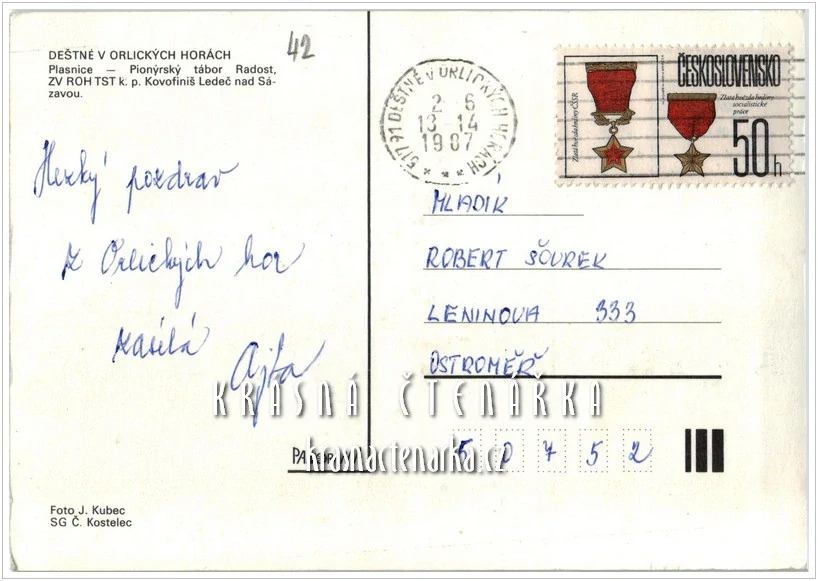 42
DEŠTNÉ V ORLICKÝCH HORÁCH
Plasnice — Pionýrský tábor Radost,
ZV ROH TST k. p. Kovofiniš Ledeč nad Sá-
zavou.
517 91 DEŠTNÉ V ORLICKÝCH HORÁCH
2 6
13-14
1987
Zlatá hvězda hrdiny ČSSR
ČESKOSLOVENSKO
Zlatá hvězda hrdiny
socialistické
práce
50h
Hezký pozdrav
z Orlických hor
zasílá
Ajka
MLADÍK
ROBERT ŠOUREK
LENINOVA 333
OSTROMĚŘ
KRÁSNÁ ČTENÁŘKA
krasnactenarka.cz
50752
Foto J. Kubec
SG Č. Kostelec